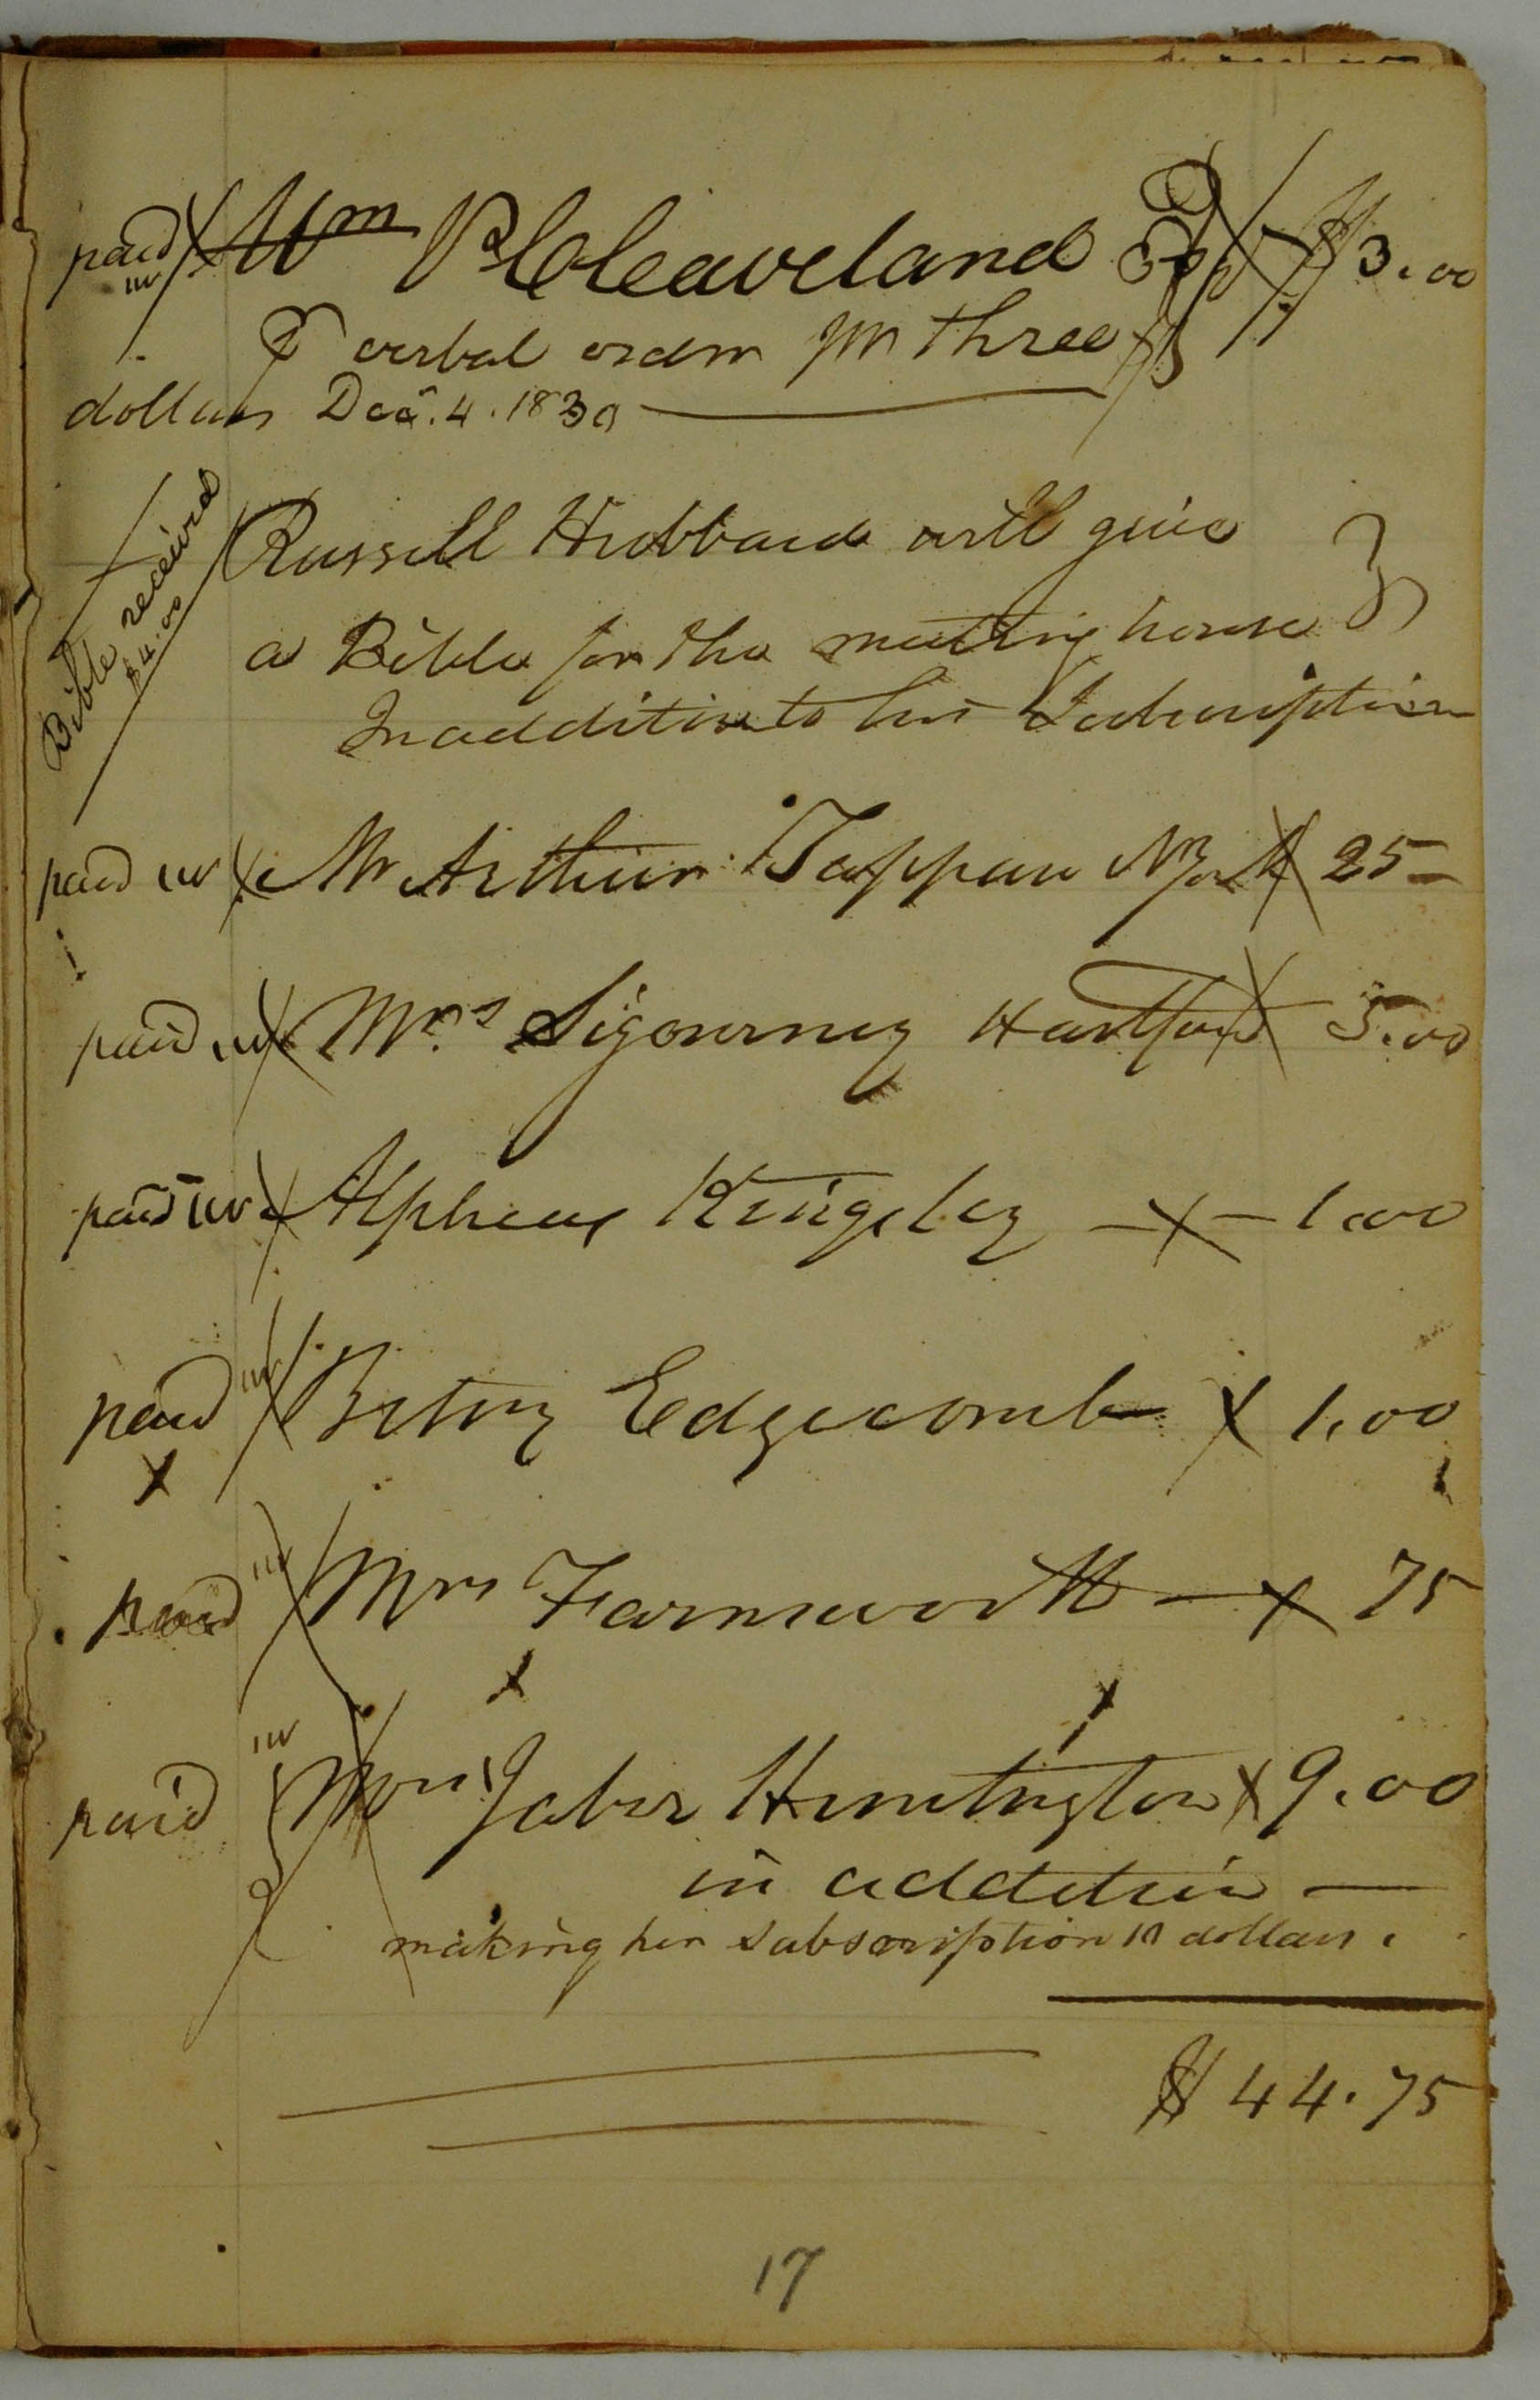 paid Wm P Cleaveland $3.00
verbal order for three
dollars Dec. 4. 1830
Bible received
$4.00
Russell Hubbard will give
a Bible for the meeting house
In addition to his Subscription
paid Mr Arthur Tappan N York 25
paid Mrs Sigourney Hartford 5.00
paid Alpheus Kingsley 1.00
paid Betsy Edgecomb 1.00
paid Mrs Farnsworth 75
paid Mrs Jabez Huntington 9.00
in addition
making her subscription 10 dollars.
$44.75
17